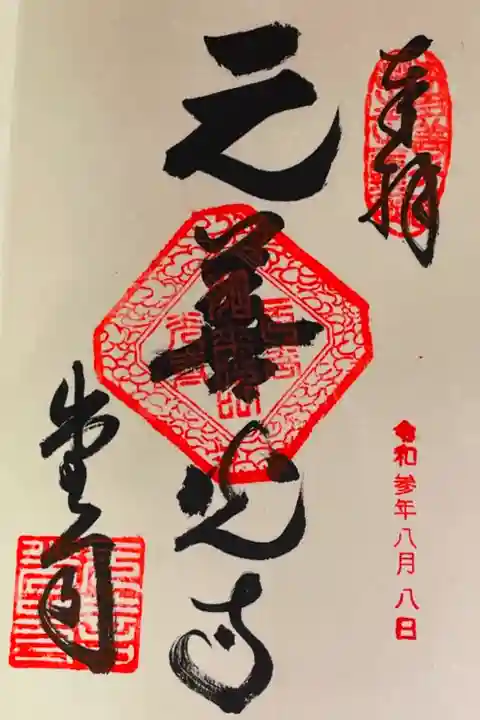 奉拝
令和参年八月八日
元華光寺
堂司